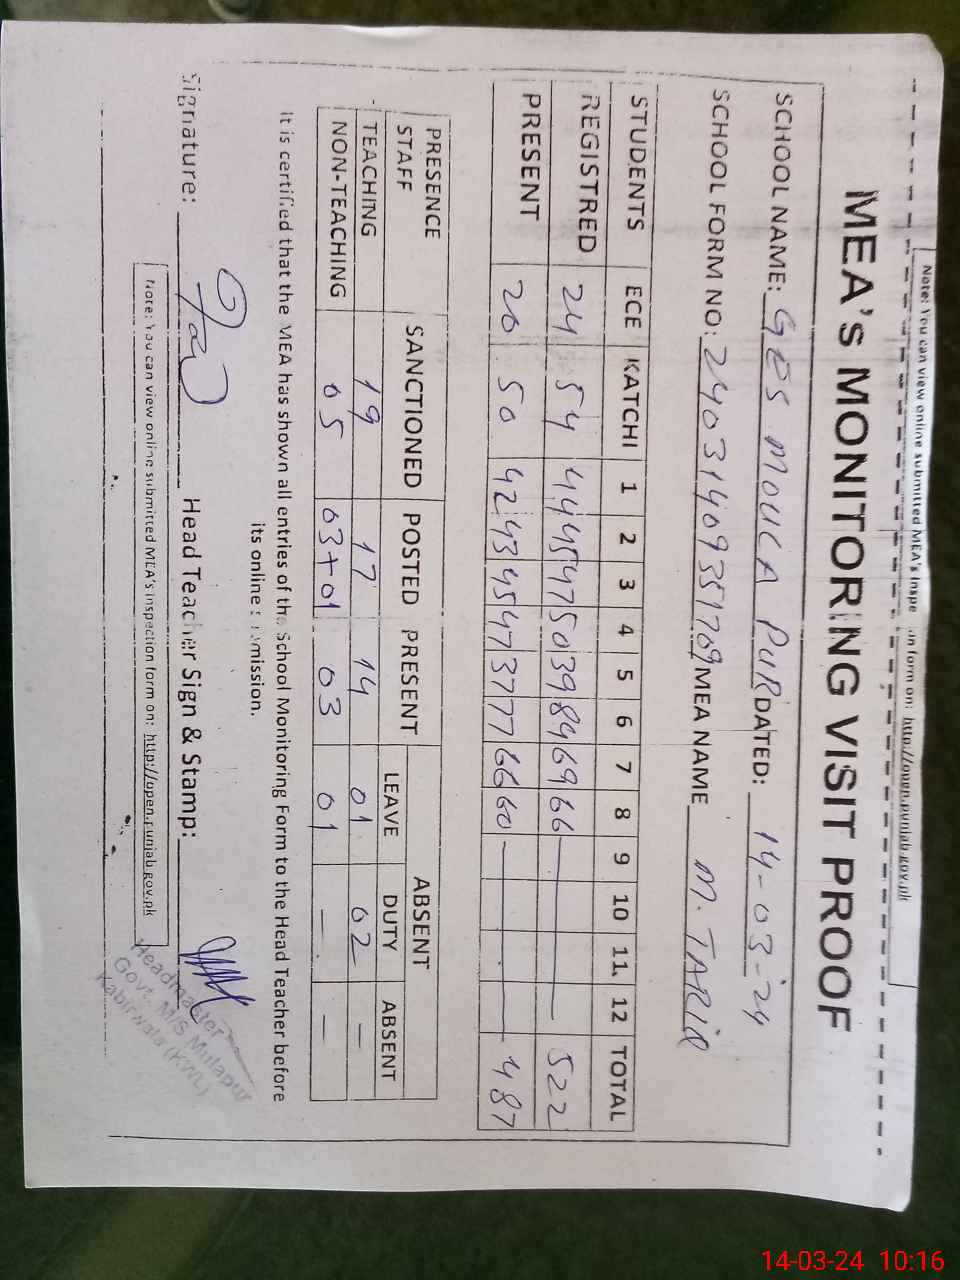 Note: You can view online submitted MEA's Inspe on form on: http://open.punjab.gov.pk
MEA's MONITORING VISIT PROOF
SCHOOL NAME: GES MOULA PUR DATED: 14-03-24
SCHOOL FORM NO: 24031409351709 MEA NAME M. TARIQ
STUDENTS ECE KATCHI 1 2 3 4 5 6 7 8 9 10 11 12 TOTAL
REGISTRED 24 54 44 45 47 50 39 84 69 66 — 522
PRESENT 20 50 42 43 45 47 37 77 66 60 — 487
PRESENCE STAFF SANCTIONED POSTED PRESENT ABSENT
LEAVE DUTY ABSENT
TEACHING 19 17 14 01 02 —
NON-TEACHING 05 03+01 03 01 — —
It is certified that the MEA has shown all entries of the School Monitoring Form to the Head Teacher before
its online mission.
Signature: Head Teacher Sign & Stamp:
Headmaster
Govt. M/S Mullapur
Kabirwala (KWL)
Note: You can view online submitted MEA's Inspection form on: http://open.punjab.gov.pk
14-03-24 10:16